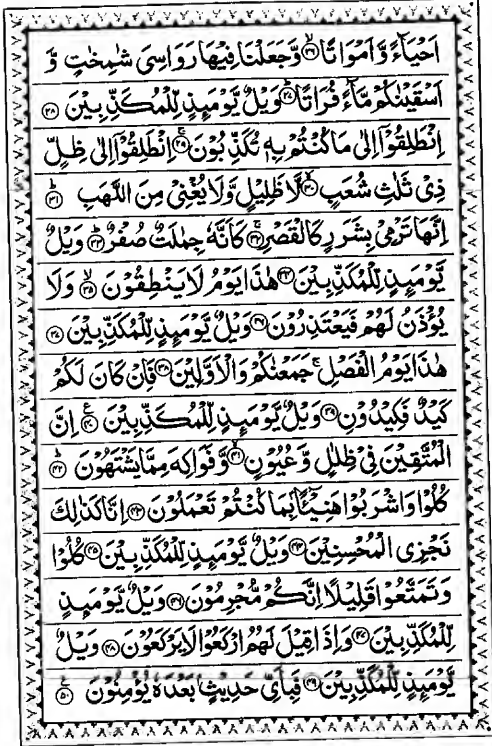 اَحْيَآءً وَّ اَمْوَاتًا ۙ﴿۲۶﴾ وَّ جَعَلْنَا فِيْهَا رَوَاسِيَ شٰمِخٰتٍ وَّ
اَسْقَيْنٰكُمْ مَّآءً فُرَاتًا ؕ﴿۲۷﴾ وَيْلٌ يَّوْمَئِذٍ لِّلْمُكَذِّبِيْنَ ﴿۲۸﴾
اِنْطَلِقُوْۤا اِلٰى مَا كُنْتُمْ بِهٖ تُكَذِّبُوْنَ ۚ﴿۲۹﴾ اِنْطَلِقُوْۤا اِلٰى ظِلٍّ
ذِيْ ثَلٰثِ شُعَبٍ ۙ﴿۳۰﴾ لَّا ظَلِيْلٍ وَّ لَا يُغْنِيْ مِنَ اللَّهَبِ ؕ﴿۳۱﴾
اِنَّهَا تَرْمِيْ بِشَرَرٍ كَالْقَصْرِ ۚ﴿۳۲﴾ كَاَنَّهٗ جِمٰلَتٌ صُفْرٌ ؕ﴿۳۳﴾ وَيْلٌ
يَّوْمَئِذٍ لِّلْمُكَذِّبِيْنَ ﴿۳۴﴾ هٰذَا يَوْمُ لَا يَنْطِقُوْنَ ۙ﴿۳۵﴾ وَ لَا
يُؤْذَنُ لَهُمْ فَيَعْتَذِرُوْنَ ﴿۳۶﴾ وَيْلٌ يَّوْمَئِذٍ لِّلْمُكَذِّبِيْنَ ﴿۳۷﴾
هٰذَا يَوْمُ الْفَصْلِ ۚ جَمَعْنٰكُمْ وَ الْاَوَّلِيْنَ ﴿۳۸﴾ فَاِنْ كَانَ لَكُمْ
كَيْدٌ فَكِيْدُوْنِ ﴿۳۹﴾ وَيْلٌ يَّوْمَئِذٍ لِّلْمُكَذِّبِيْنَ ﴿۴۰﴾ اِنَّ
الْمُتَّقِيْنَ فِيْ ظِلٰلٍ وَّ عُيُوْنٍ ۙ﴿۴۱﴾ وَّ فَوَاكِهَ مِمَّا يَشْتَهُوْنَ ؕ﴿۴۲﴾
كُلُوْا وَ اشْرَبُوْا هَنِيْٓـًٔۢا بِمَا كُنْتُمْ تَعْمَلُوْنَ ﴿۴۳﴾ اِنَّا كَذٰلِكَ
نَجْزِي الْمُحْسِنِيْنَ ﴿۴۴﴾ وَيْلٌ يَّوْمَئِذٍ لِّلْمُكَذِّبِيْنَ ﴿۴۵﴾ كُلُوْا
وَ تَمَتَّعُوْا قَلِيْلًا اِنَّكُمْ مُّجْرِمُوْنَ ﴿۴۶﴾ وَيْلٌ يَّوْمَئِذٍ
لِّلْمُكَذِّبِيْنَ ﴿۴۷﴾ وَ اِذَا قِيْلَ لَهُمُ ارْكَعُوْا لَا يَرْكَعُوْنَ ﴿۴۸﴾ وَيْلٌ
يَّوْمَئِذٍ لِّلْمُكَذِّبِيْنَ ﴿۴۹﴾ فَبِاَيِّ حَدِيْثٍۭ بَعْدَهٗ يُؤْمِنُوْنَ ﴿۵۰﴾